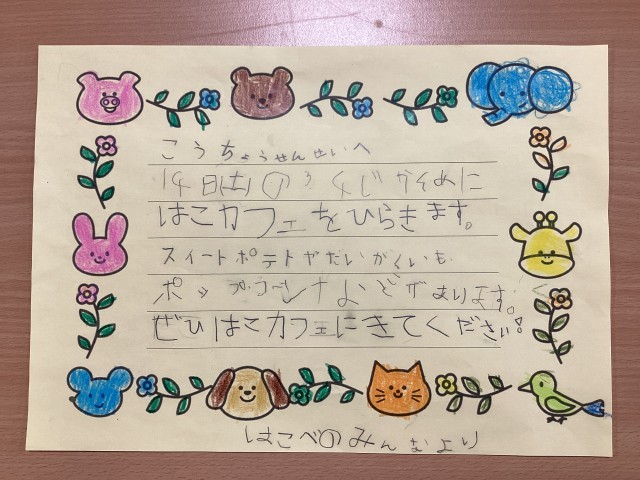 こうちょうせんせいへ
14日(土)の3 くじ かそめに
はこカフェをひらきます。
スイートポテトやだいがくいも
ポップコーンなどがあります。
ぜひはこカフェにきてください!
はこべのみんなより